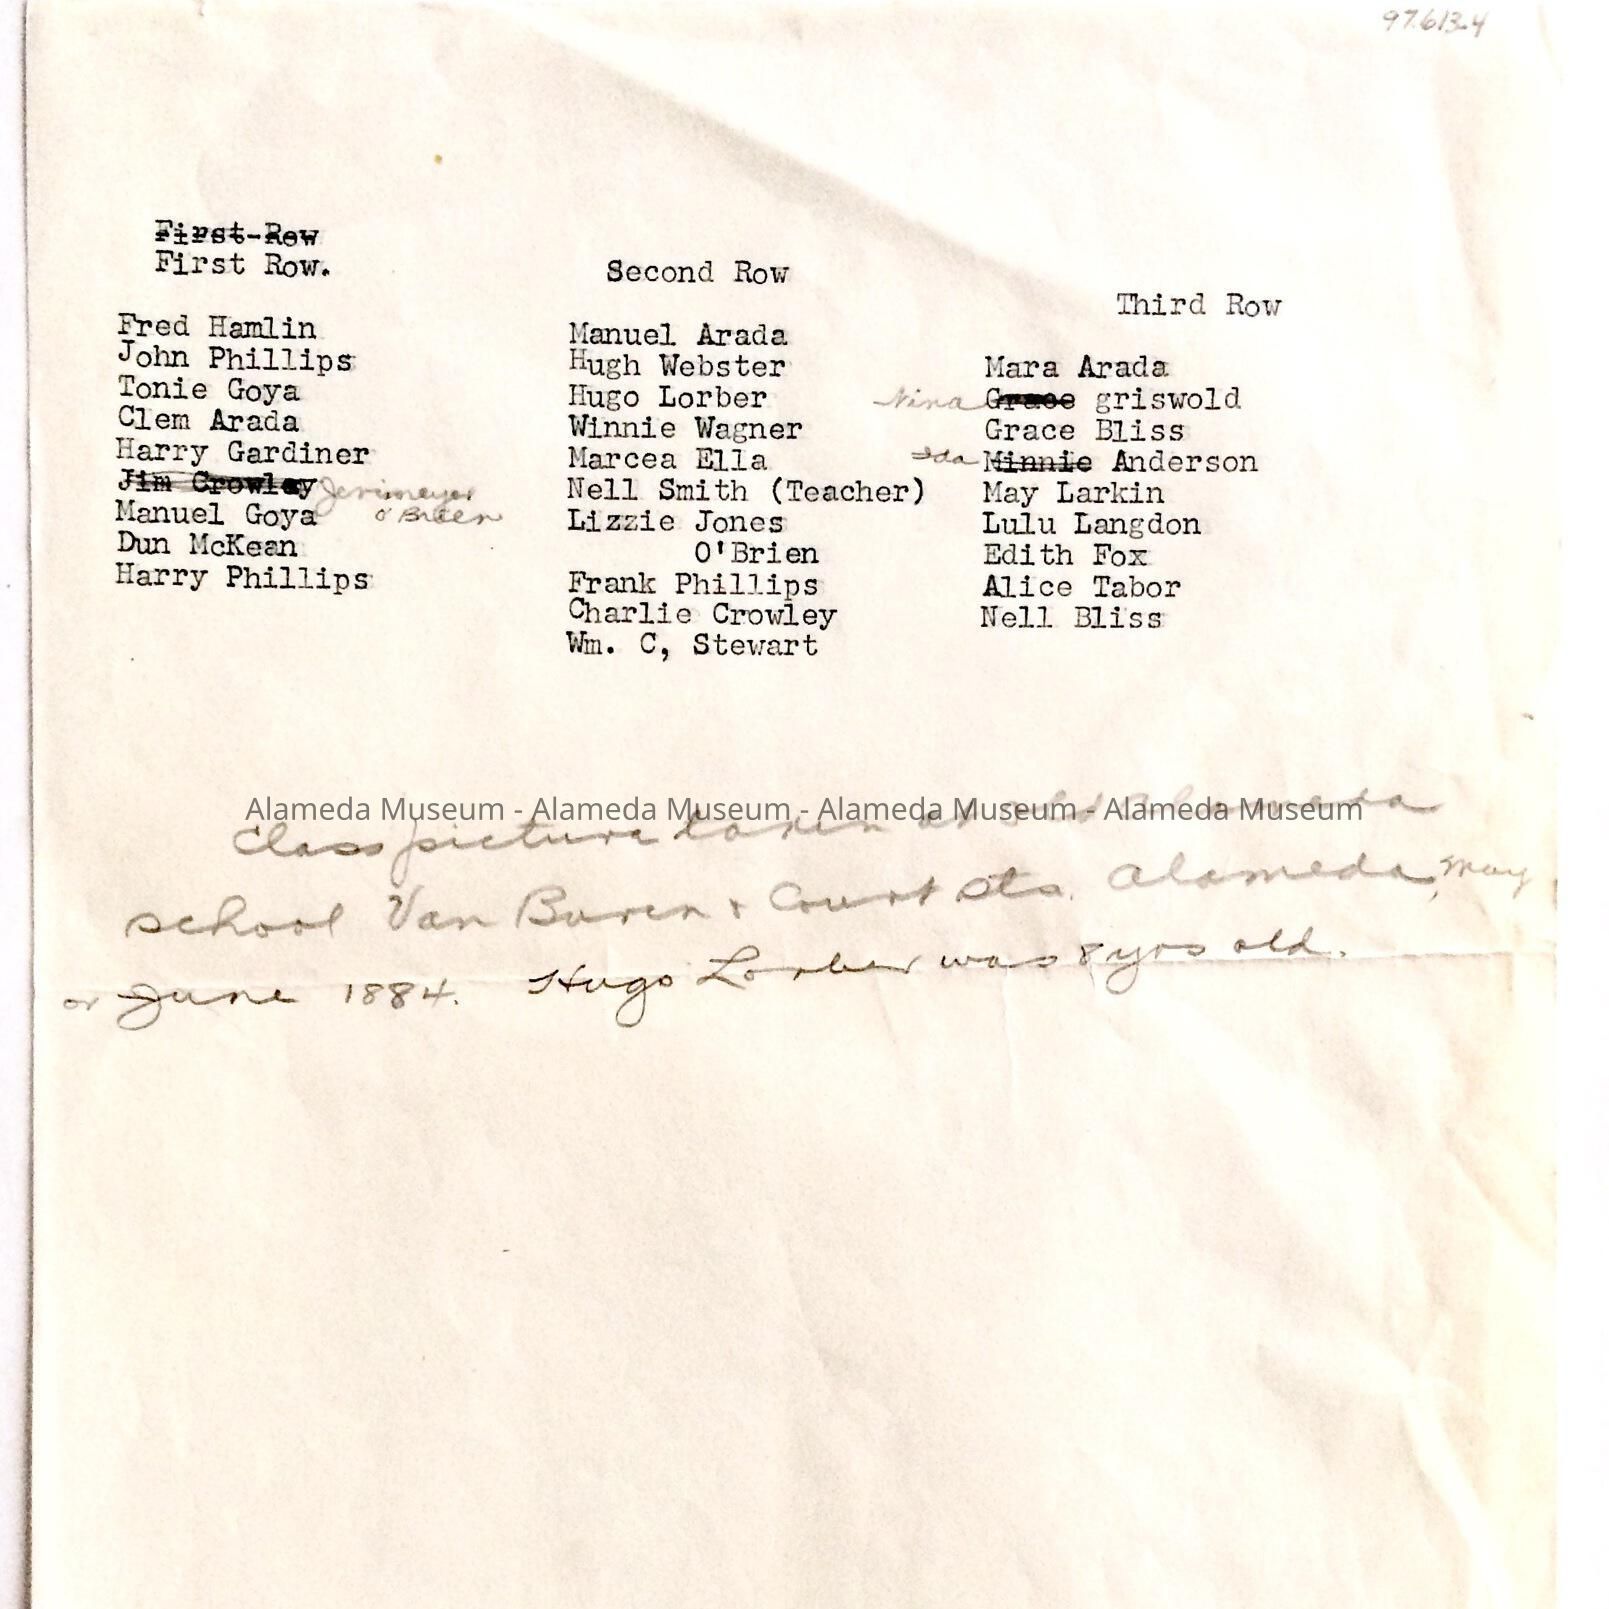 97.613.4
First Row
First Row.
Fred Hamlin
John Phillips
Tonie Goya
Clem Arada
Harry Gardiner
Jim Crowley Jerimeyer
O'Brien
Manuel Goya
Dun McKean
Harry Phillips
Second Row
Manuel Arada
Hugh Webster
Hugo Lorber
Winnie Wagner
Marcea Ella
Nell Smith (Teacher)
Lizzie Jones
O'Brien
Frank Phillips
Charlie Crowley
Wm. C, Stewart
Third Row
Mara Arada
Nina Grace griswold
Grace Bliss
Ida Minnie Anderson
May Larkin
Lulu Langdon
Edith Fox
Alice Tabor
Nell Bliss
Alameda Museum - Alameda Museum - Alameda Museum - Alameda Museum
Class picture taken at old Alameda
school Van Buren + Court Sts. Alameda, May
or June 1884. Hugo Lorber was 8 yrs old.